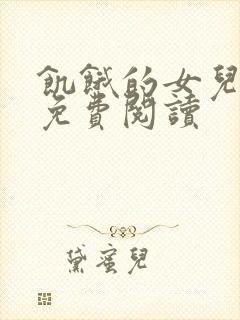 飢餓的女兒
免費閱讀
黛蜜兒